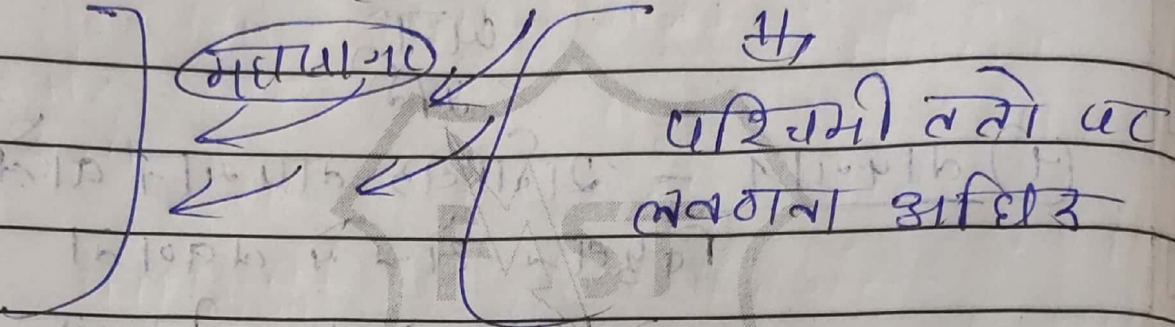 महासागर
#
पश्चिमी तटो पर
लवणता अधिक